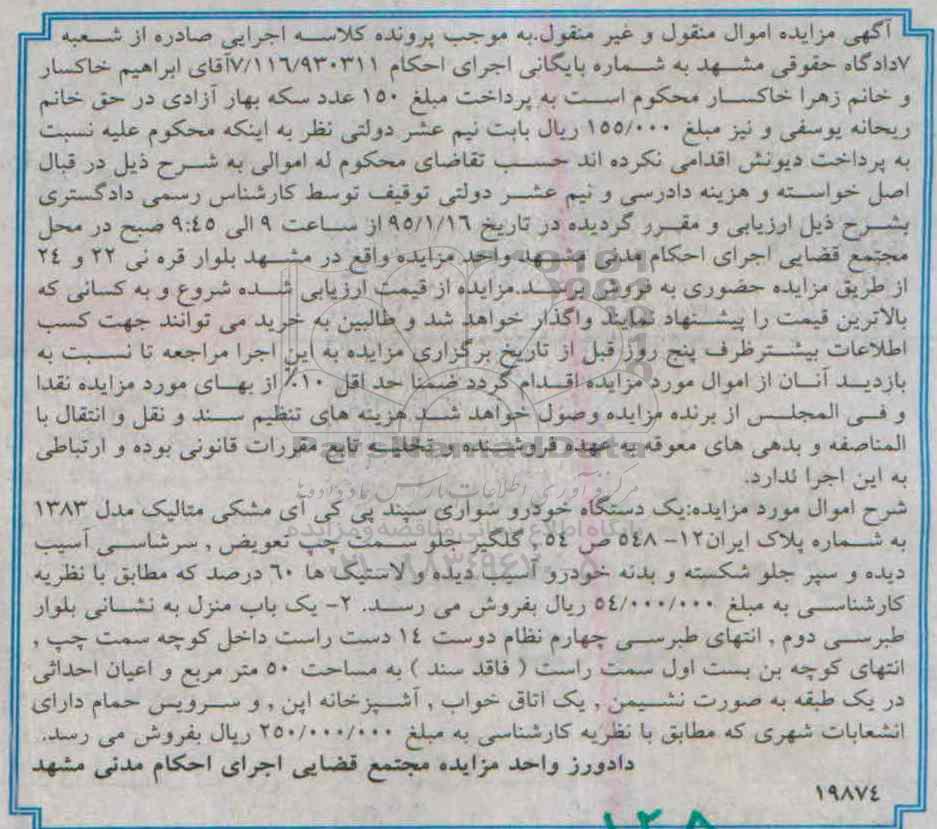 آگهی مزایده اموال منقول و غیر منقول.به موجب پرونده کلاسه اجرایی صادره از شعبه
۷دادگاه حقوقی مشهد به شماره بایگانی اجرای احکام ۷/۱۱۶/۹۳۰۳۱۱آقای ابراهیم خاکسار
و خانم زهرا خاکسار محکوم است به پرداخت مبلغ ۱۵۰ عدد سکه بهار آزادی در حق خانم
ریحانه یوسفی و نیز مبلغ ۱۵۵/۰۰۰ ریال بابت نیم عشر دولتی نظر به اینکه محکوم علیه نسبت
به پرداخت دیونش اقدامی نکرده اند حسب تقاضای محکوم له اموالی به شرح ذیل در قبال
اصل خواسته و هزینه دادرسی و نیم عشر دولتی توقیف توسط کارشناس رسمی دادگستری
بشرح ذیل ارزیابی و مقرر گردیده در تاریخ ۹۵/۱/۱۶ از ساعت ۹ الی ۹:٤٥ صبح در محل
مجتمع قضایی اجرای احکام مدنی مشهد واحد مزایده واقع در مشهد بلوار قره نی ۲۲ و ۲٤
از طریق مزایده حضوری به فروش برسد.مزایده از قیمت ارزیابی شده شروع و به کسانی که
بالاترین قیمت را پیشنهاد نمایند واگذار خواهد شد و طالبین به خرید می توانند جهت کسب
اطلاعات بیشترظرف پنج روز قبل از تاریخ برگزاری مزایده به این اجرا مراجعه تا نسبت به
بازدید آنان از اموال مورد مزایده اقدام گردد ضمنا حد اقل ۱۰٪ از بهای مورد مزایده نقدا
و فی المجلس از برنده مزایده وصول خواهد شد هزینه های تنظیم سند و نقل و انتقال با
المناصفه و بدهی های معوقه به عهده فروشنده و تخلیه تابع مقررات قانونی بوده و ارتباطی
به این اجرا ندارد.
شرح اموال مورد مزایده:یک دستگاه خودرو سواری سمند پی کی آی مشکی متالیک مدل ۱۳۸۳
به شماره پلاک ایران۱۲- ٥٤۸ ص ٥٤ , گلگیر جلو سمت چپ تعویض , سرشاسی آسیب
دیده و سپر جلو شکسته و بدنه خودرو آسیب دیده و لاستیک ها ٦۰ درصد که مطابق با نظریه
کارشناسی به مبلغ ٥٤/۰۰۰/۰۰۰ ریال بفروش می رسد. ۲- یک باب منزل به نشانی بلوار
طبرسی دوم , انتهای طبرسی چهارم نظام دوست ۱٤ دست راست داخل کوچه سمت چپ ,
انتهای کوچه بن بست اول سمت راست ( فاقد سند ) به مساحت ٥۰ متر مربع و اعیان احداثی
در یک طبقه به صورت نشیمن , یک اتاق خواب , آشپزخانه اپن , و سرویس حمام دارای
انشعابات شهری که مطابق با نظریه کارشناسی به مبلغ ۲٥۰/۰۰۰/۰۰۰ ریال بفروش می رسد.
دادورز واحد مزایده مجتمع قضایی اجرای احکام مدنی مشهد
۱۹۸۷٤